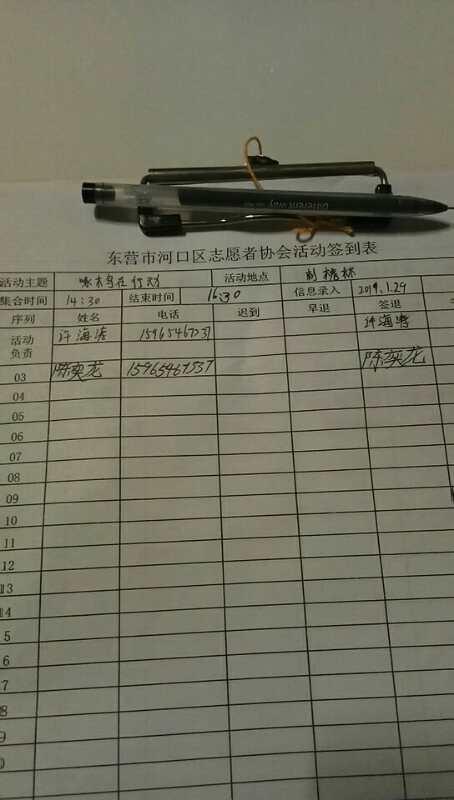 Different way
东营市河口区志愿者协会活动签到表
活动主题 啄木鸟在行动 活动地点
集合时间 14:30 结束时间 16:30 信息录入 2019.1.29
序列 姓名 电话 迟到 早退 签退
活动负责 许海涛 许海涛
03 陈奕龙 15965467537 陈奕龙
04
05
06
07
08
09
10
11
12
13
14
5
6
7
8
9
0